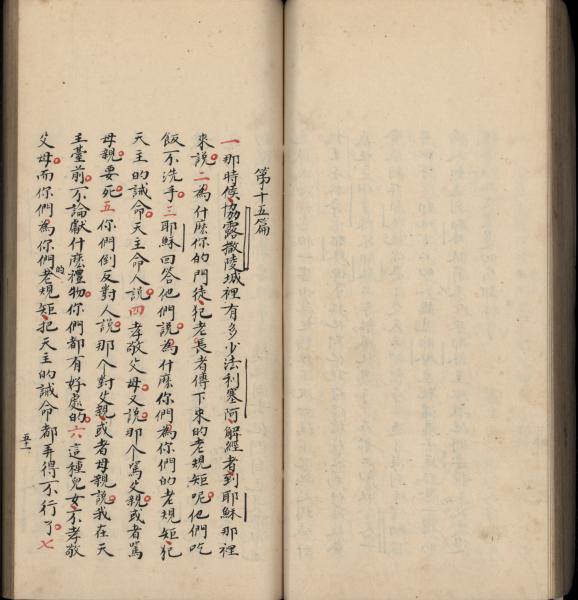 第十五篇
一那時候協露撒陵城裡有多少法利塞阿解經者到耶穌那裡
來說二為什麼你的門徒犯老長者傳下來的老規矩呢他們吃
飯不洗手三耶穌回答他們說為什麼你們為你們的老規矩犯
天主的誡命天主命人說四孝敬父母又說那个罵父親或者罵
母親要死五你們倒反對人說那个對父親或者母親說我在天
主臺前不論獻什麼禮物你們都有好處的六這種兒女不孝敬
父母而你們為你們的老規矩把天主的誡命都弄得不行了七
五十一